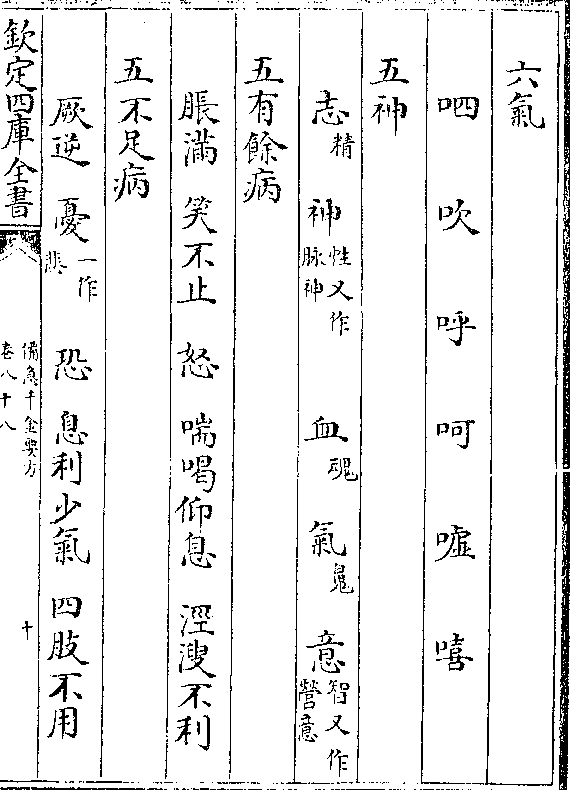 六氣
呬 吹 呼 呵 噓 嘻
五神
志精 神性又作脉神 血魂 氣鬼 意智又作營意
五有餘病
脹滿 笑不止 怒 喘喝仰息 涇溲不利
五不足病
厥逆 憂一作悲 恐 息利少氣 四肢不用
欽定四庫全書
備急千金要方
卷八十八
十